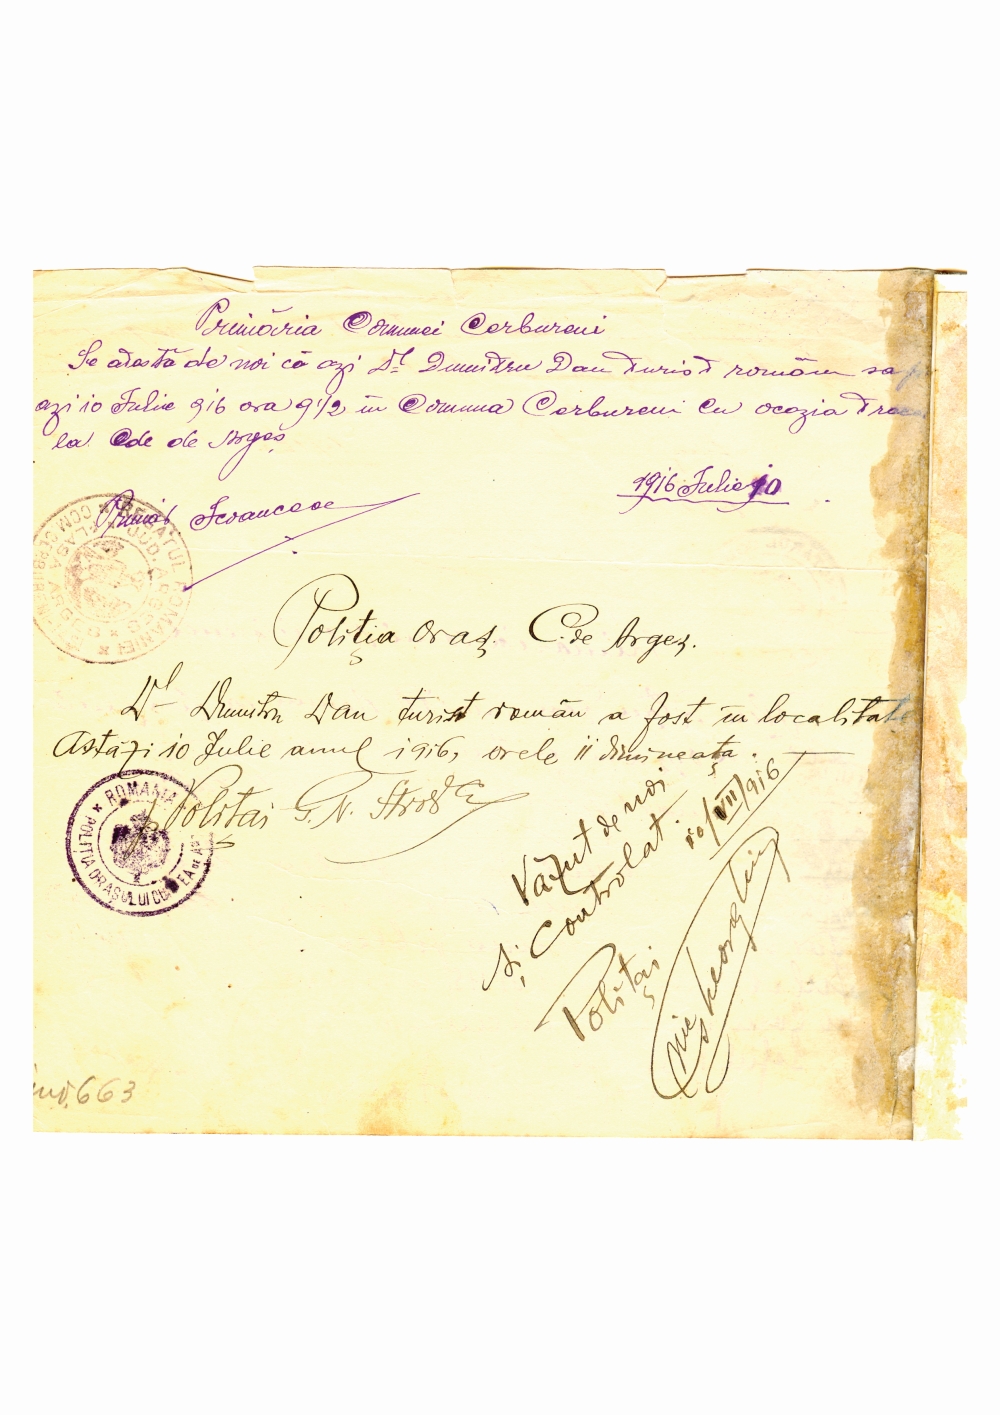 Primăria Comunei Corbureni
Se atestă de noi că azi Dl. Dumitru Dan turist român sa
azi 10 Iulie 916 ora 9 1/2 în Comuna Corbureni cu ocazia
la C de Argeș
1916 Iulie 10
Primar
REGATUL ROMÂNIEI
JUD. ARGEȘ
Poliția Oraș. C. de Argeș.
Dl Dumitru Dan turist român a fost în localitate
Astăzi 10 Iulie anul 1916, orele 11 dimineața.
Polițai G. N.
ROMANIA
POLIȚIA ORAȘULUI CURTEA DE ARGEȘ
Văzut de noi
și Controlat. 10/VII/916
Polițai
Nic Gheorghiu
Inv. 663